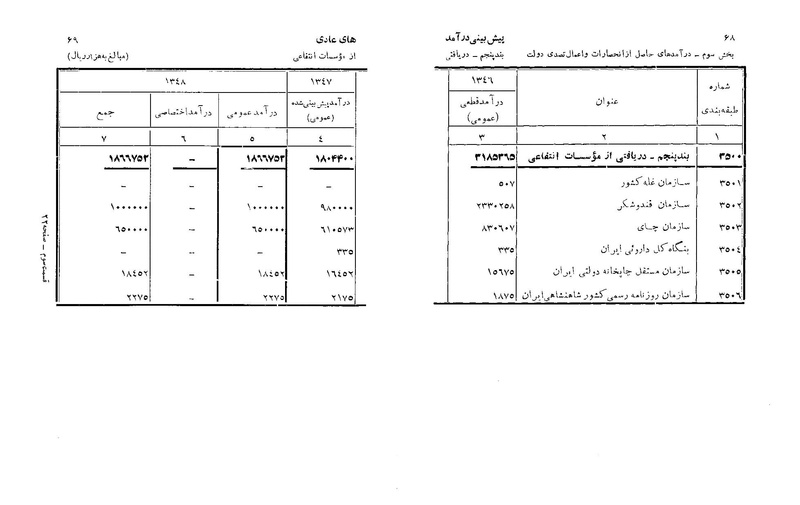 ۶۸ پیش‌بینی درآمد
بخش سوم ــ درآمدهای حاصل از انحصارات واعمال تصدی دولت بندپنجم ــ دریافتی
شماره طبقه‌بندی عنوان ۱۳۴۶ درآمدقطعی (عمومی)
۱ ۲ ۳
۳۵۰۰ بندپنجم ــ دریافتی از مؤسسات انتفاعی ۳۱۸۵۳۶۵
۳۵۰۱ سازمان غله کشور ۵۰۷
۳۵۰۲ سازمان قندوشکر ۲۳۳۰۲۵۸
۳۵۰۳ سازمان چای ۸۳۰۶۰۷
۳۵۰۴ بنگاه کل داروئی ایران ۳۳۵
۳۵۰۵ سازمان مستقل چاپخانه دولتی ایران ۱۵۶۷۵
۳۵۰۶ سازمان روزنامه رسمی کشور شاهنشاهی ایران ۱۸۷۵
های عادی ۶۹
از مؤسسات انتفاعی (مبالغ به هزار ریال)
۱۳۴۷ ۱۳۴۸
درآمدپیش‌بینی‌شده (عمومی) درآمدعمومی درآمداختصاصی جمع
۴ ۵ ۶ ۷
۱۸۰۴۴۰۰ ۱۸۶۶۷۵۲ ــ ۱۸۶۶۷۵۲
ــ ــ ــ ــ
۹۸۰۰۰۰ ۱۰۰۰۰۰۰ ــ ۱۰۰۰۰۰۰
۶۱۰۵۷۳ ۶۵۰۰۰۰ ــ ۶۵۰۰۰۰
۳۳۵ ــ ــ ــ
۱۶۴۵۲ ۱۸۴۵۲ ــ ۱۸۴۵۲
۲۱۷۵ ۲۲۷۵ ــ ۲۲۷۵
قسمت سوم ــ صفحه ۲۲